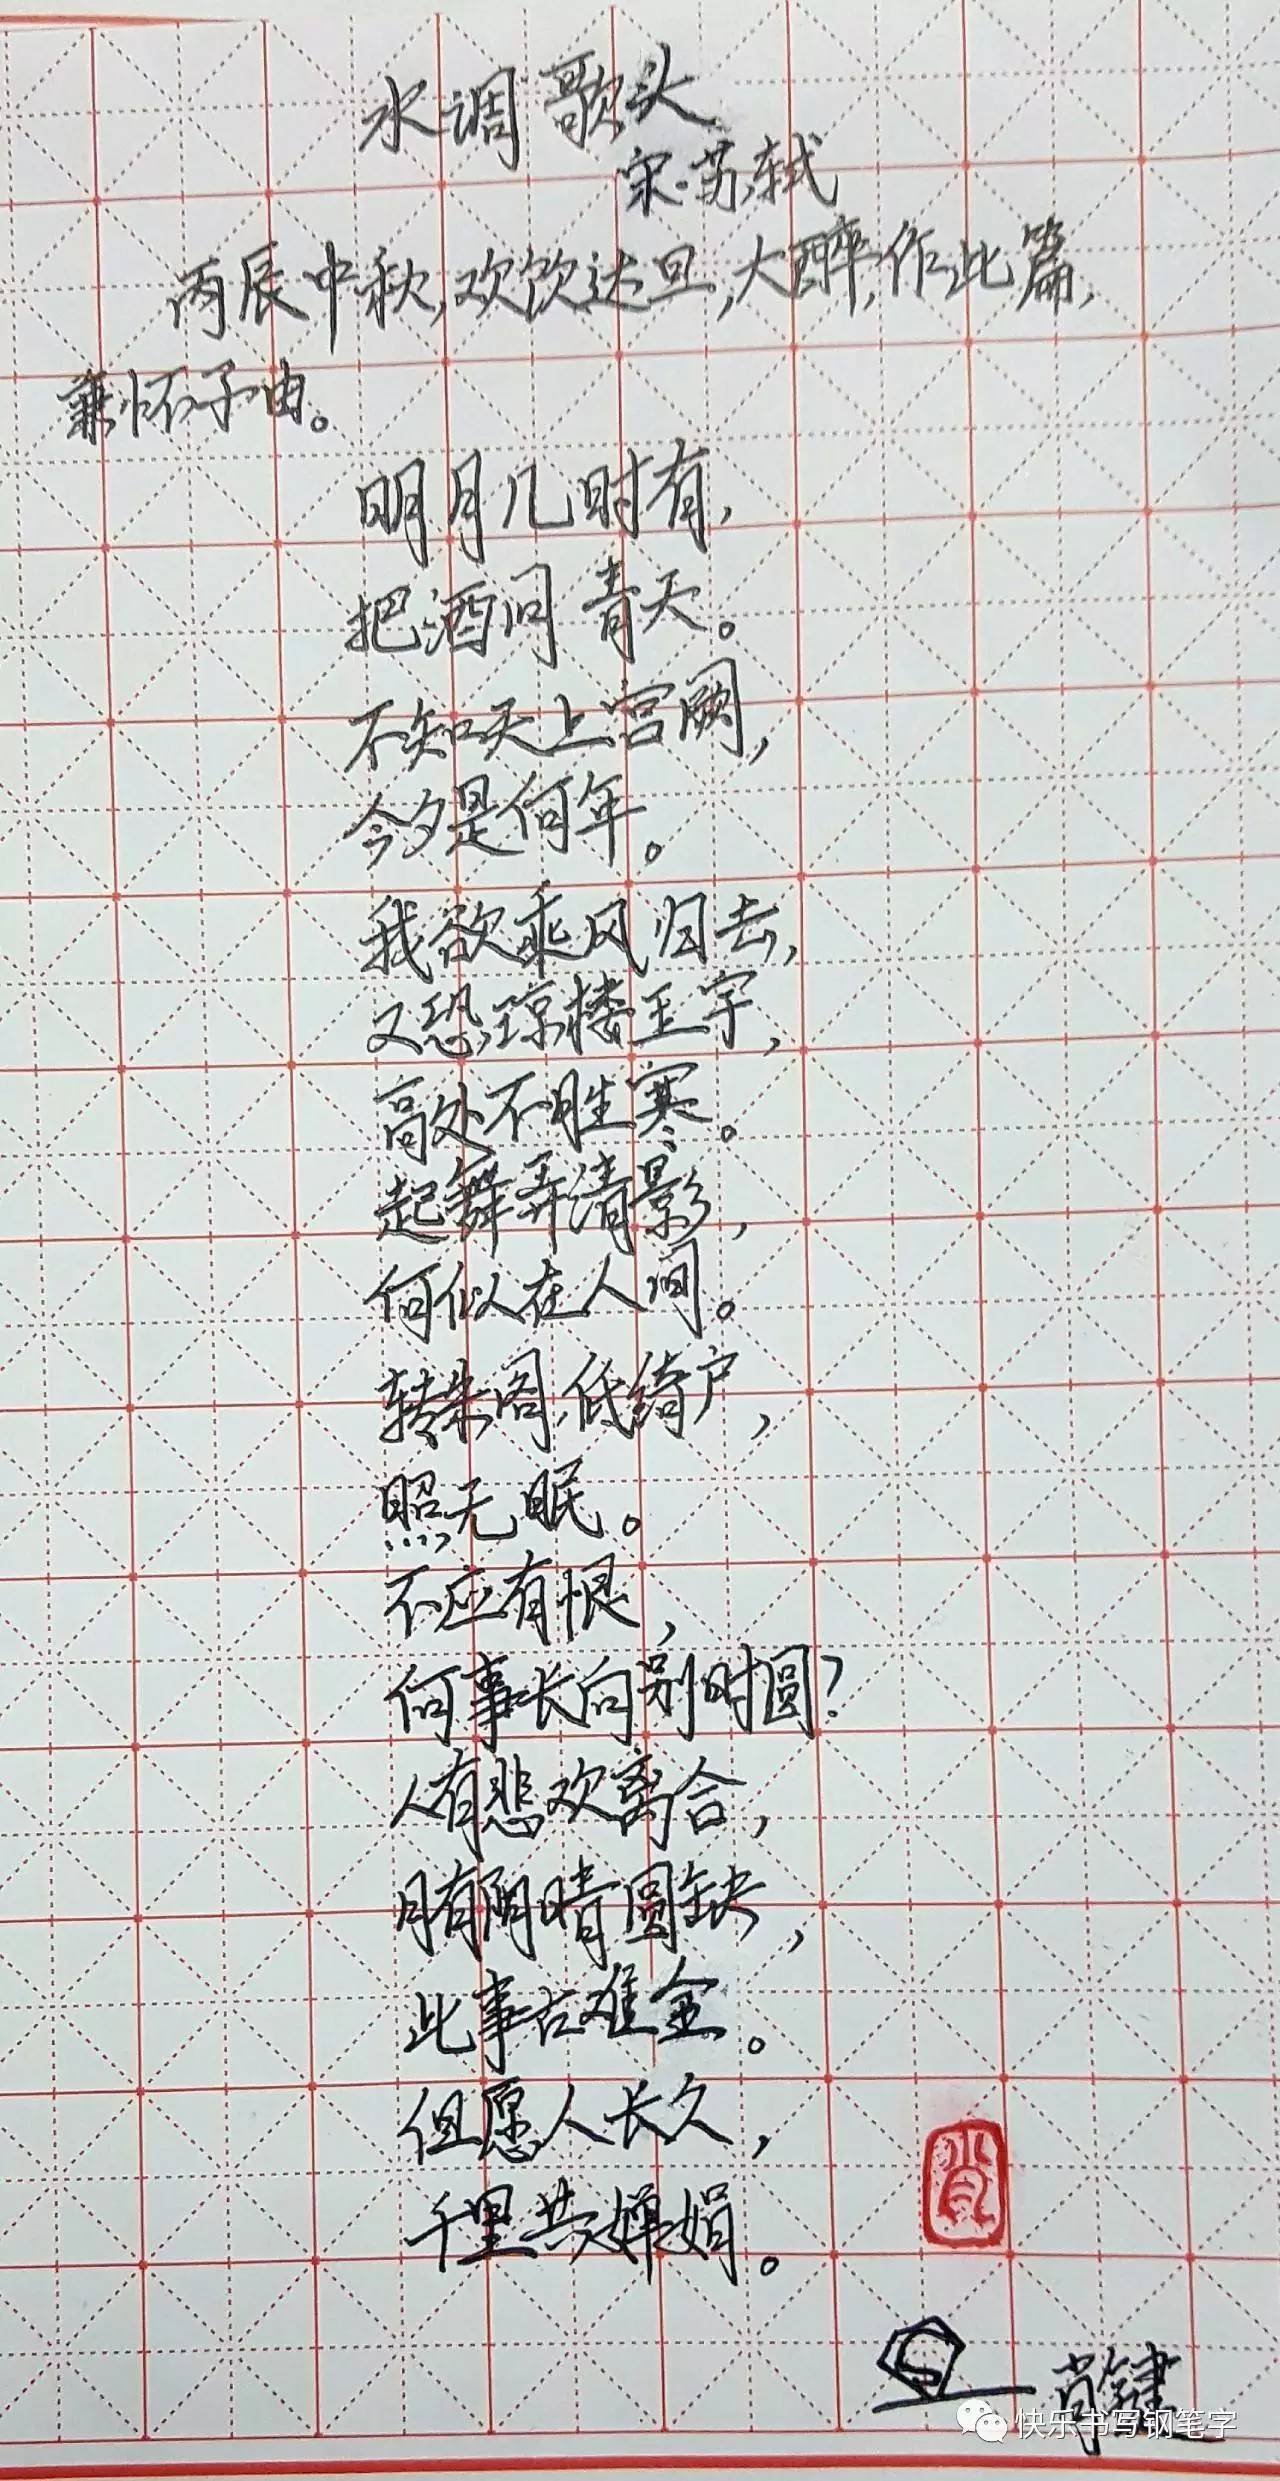 水调歌头
宋·苏轼
丙辰中秋,欢饮达旦,大醉,作此篇,
兼怀子由。
明月几时有,
把酒问青天。
不知天上宫阙,
今夕是何年。
我欲乘风归去,
又恐琼楼玉宇,
高处不胜寒。
起舞弄清影,
何似在人间。
转朱阁,低绮户,
照无眠。
不应有恨,
何事长向别时圆?
人有悲欢离合,
月有阴晴圆缺,
此事古难全。
但愿人长久,
千里共婵娟。
肖
S
肖键
快乐书写钢笔字